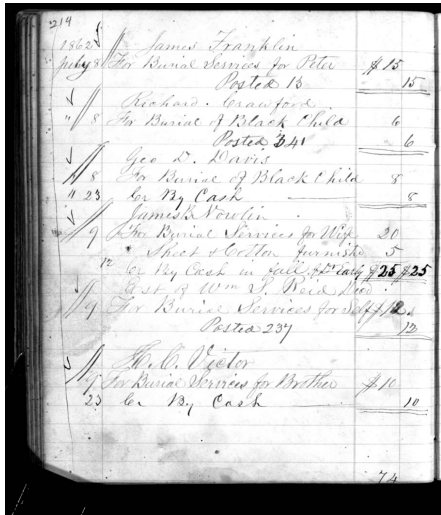 214
1862 James Franklin
July 8 For Burial Services for Peter $15
Posted 13 15
Richard. Crawford
" 8 For Burial of Black Child 6
Posted 341 6
Geo D. Davis
8 For Burial of Black Child 8
" 23 Cr By Cash 8
James B Nowlin
9 For Burial Services for Wife 20
" Sheet & Cotton furnishd 5
12 Cr By Cash in full Early $25 $25
Est of Wm S. Reid Decd
9 For Burial Services for Self $12
Posted 237 12
H. C. Victor
9 For Burial Services for Brother $10
23 Cr By Cash 10
74